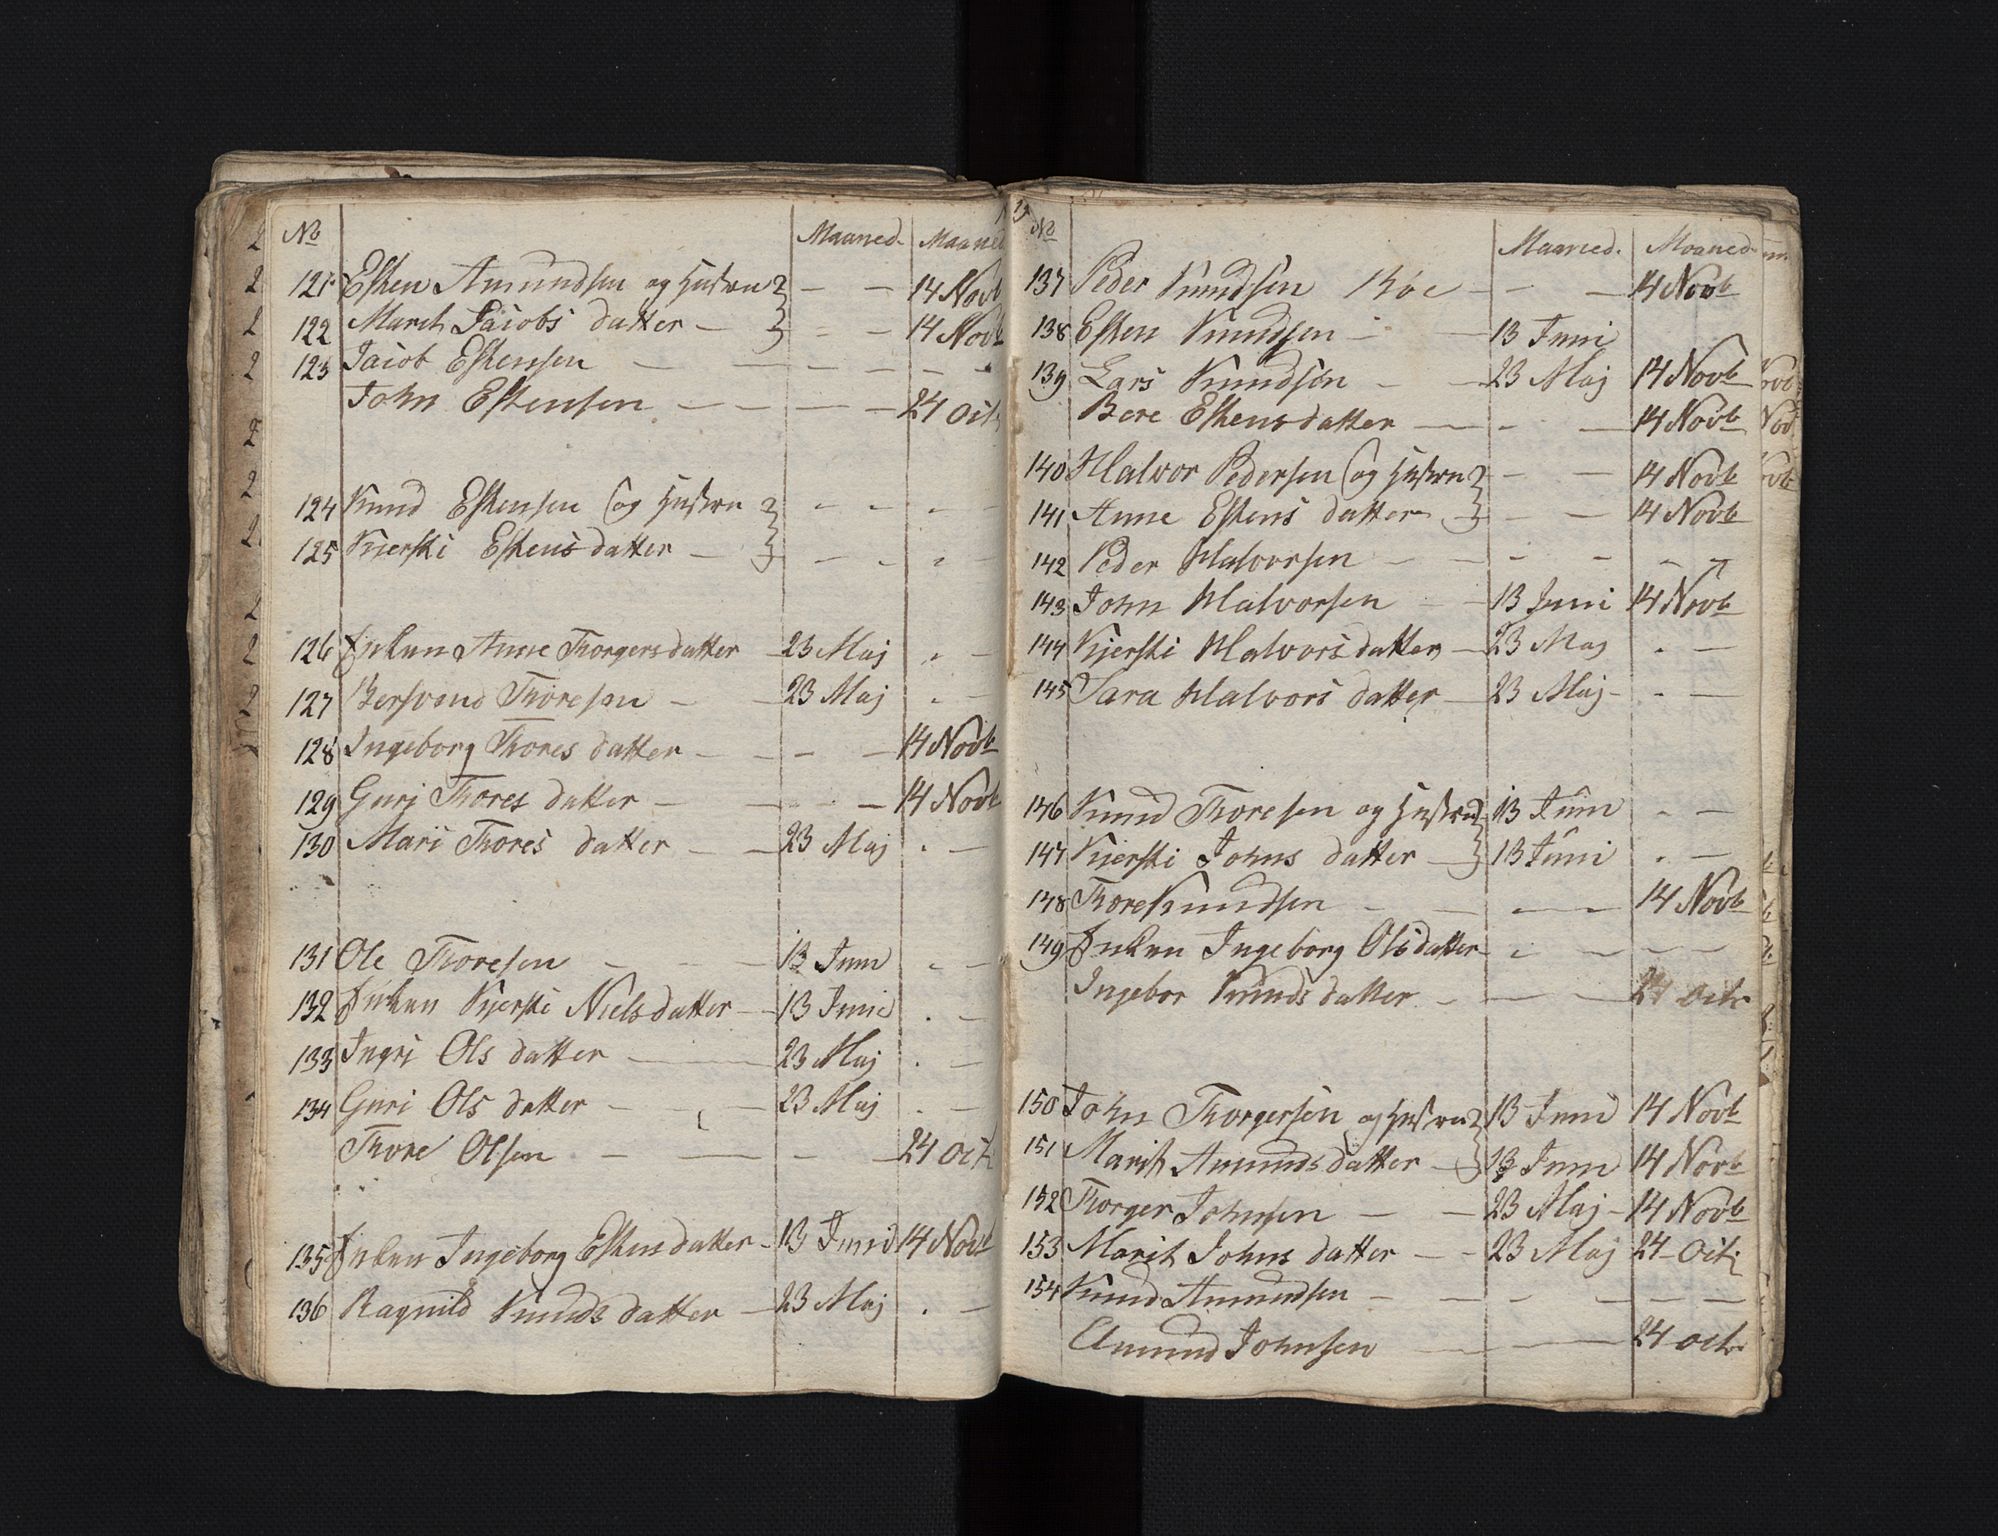 No Maaned. Maaned
121 Esten Amundsen og Hustru - - 14 Novb
122 Marit Jacobs datter - - - 14 Novb
123 Jacob Estensen - - - - -
John Estensen - - - - 24 Oct
124 Knud Estensen og Hustru - - - -
125 Kjersti Estens datter - - - - -
126 Enken Anne Thorgersdatter - 23 Maj - -
127 Bersvend Thoresen - - 23 Maj - -
128 Ingeborg Thores datter - - - 14 Novb
129 Guri Thores datter - - - - 14 Novb
130 Mari Thores datter - - 23 Maj - -
131 Ole Thoresen - - - 13 Juni - -
132 Enken Kjersti Nielsdatter - 13 Juni - -
133 Ingri Ols datter - - 23 Maj - -
134 Guri Ols datter - - 23 Maj - -
Thore Olsen - - - - 24 Oct
135 Enken Ingeborg Estensdatter - 13 Juni 14 Novb
136 Ragnild Knudsdatter - 23 Maj - -
No Maaned. Maaned
137 Peder Knudsen Röe - - - 14 Novb
138 Esten Knudsen - - 13 Juni
139 Lars Knudsen - - 23 Maj 14 Novb
Bere Estensdatter - - - 14 Novb
140 Halvor Pedersen og Hustru - - 14 Novb
141 Anne Estens datter - - - 14 Novb
142 Peder Halvorsen - - - - - -
143 John Halvorsen - - 13 Juni 14 Novb
144 Kjersti Halvorsdatter - 23 Maj - -
145 Sara Halvors datter - 23 Maj - - -
146 Knud Thoresen og Hustru 13 Juni - -
147 Kjersti Johns datter - 13 Juni - -
148 Thore Knudsen - - - - 14 Novb
149 Enken Ingeborg Olsdatter - - - -
Ingebor Knudsdatter - - - 24 Octr
150 John Thorgersen og Hustru 13 Juni 14 Novb
151 Marit Amundsdatter - 13 Juni 14 Novb
152 Thorger Johnsen - - 23 Maj - 14 Novb
153 Marit Johns datter - - 23 Maj 24 - Oct
154 Knud Amundsen - - - - - -
Amund Johnsen - - - 24 Octr